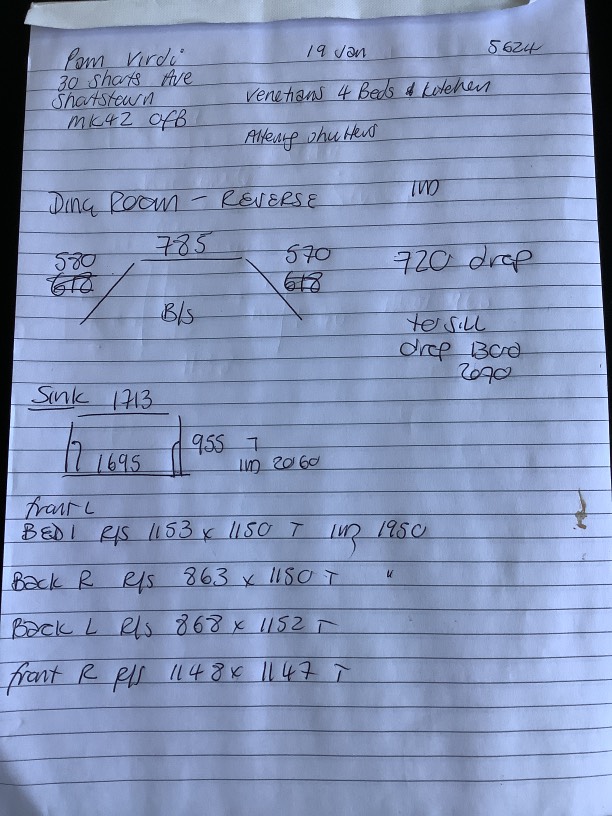 Pam Virdi 19 Jan 5624
30 Sharts Ave
Shartstown venetians 4 Beds & kitchen
MK42 OFB
shutters
Room - REVERSE
580 785 570 720 drop
618 618
B/s
to sill
drop 1300
2090
Sink 1713
955 T
1695 2060
front L
BED 1 R/s 1153 x 1150 T 1950
Back R R/s 863 x 1150 T "
Back L R/s 868 x 1152 T
front R R/s 1148 x 1147 T